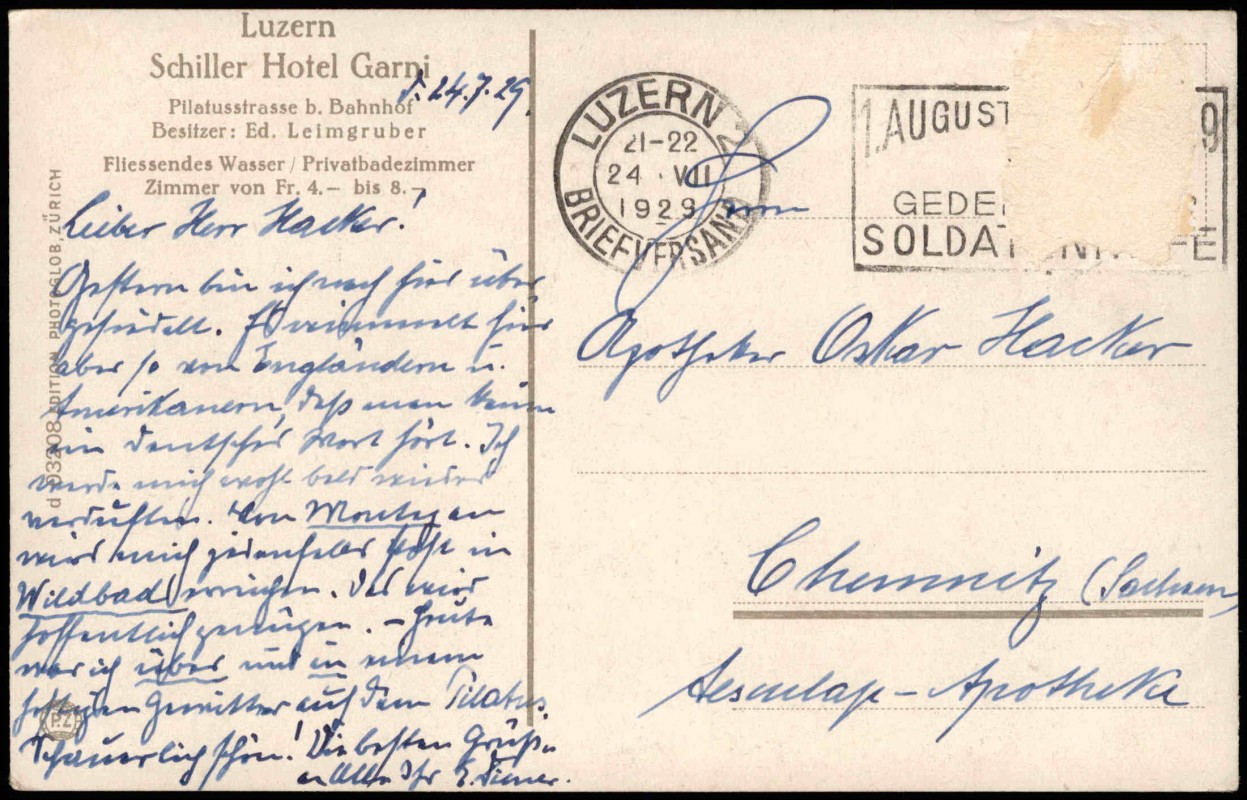 Luzern
Schiller Hotel Garni
Pilatusstrasse b. Bahnhof
Besitzer: Ed. Leimgruber
Fliessendes Wasser / Privatbadezimmer
Zimmer von Fr. 4.– bis 8.–
d 03208 EDITION PHOTOGLOB, ZÜRICH
24.7.29.
Lieber Herr Hacker!
Gestern bin ich nach hier über
gesiedelt. Es wimmelt hier
aber so von Engländern u.
Amerikanern, daß man kaum
ein deutsches Wort hört. Ich
werde mich wohl bald wieder
verduften. Von Montag an
wird mich jedenfalls Post in
Wildbad erreichen. Das wird
hoffentlich genügen. – Heute
war ich über und in einem
heftigen Gewitter auf dem Pilatus.
Schauerlich schön! Die besten Grüße
an Alle Ihr
P.Z
LUZERN 2
21-22
24 · VII
1929
BRIEFVERSAND
1. AUGUST 9
GEDE
SOLDAT
Herrn
Apotheker Oskar Hacker
Chemnitz (Sachsen)
Aesculap-Apotheke